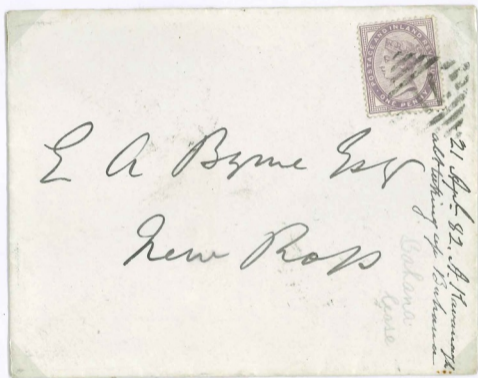 POSTAGE AND INLAND REVENUE
ONE PENNY
E A Byrne Esq
New Ross
21 Sept. 82. A. Kavanagh
abt taking up Bahana
Bahana